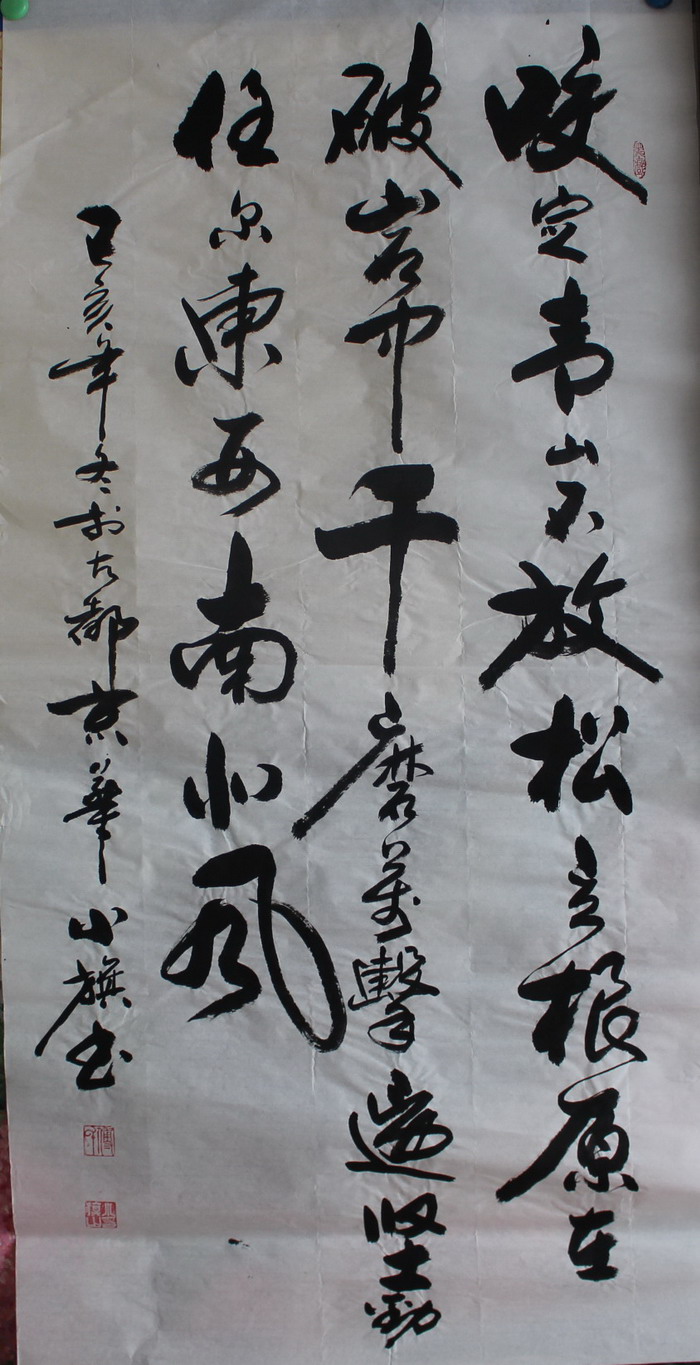 咬定青山不放松立根原在
破岩中千磨萬擊還坚勁
任尔東西南北风
己亥年冬於古都京華小旗书